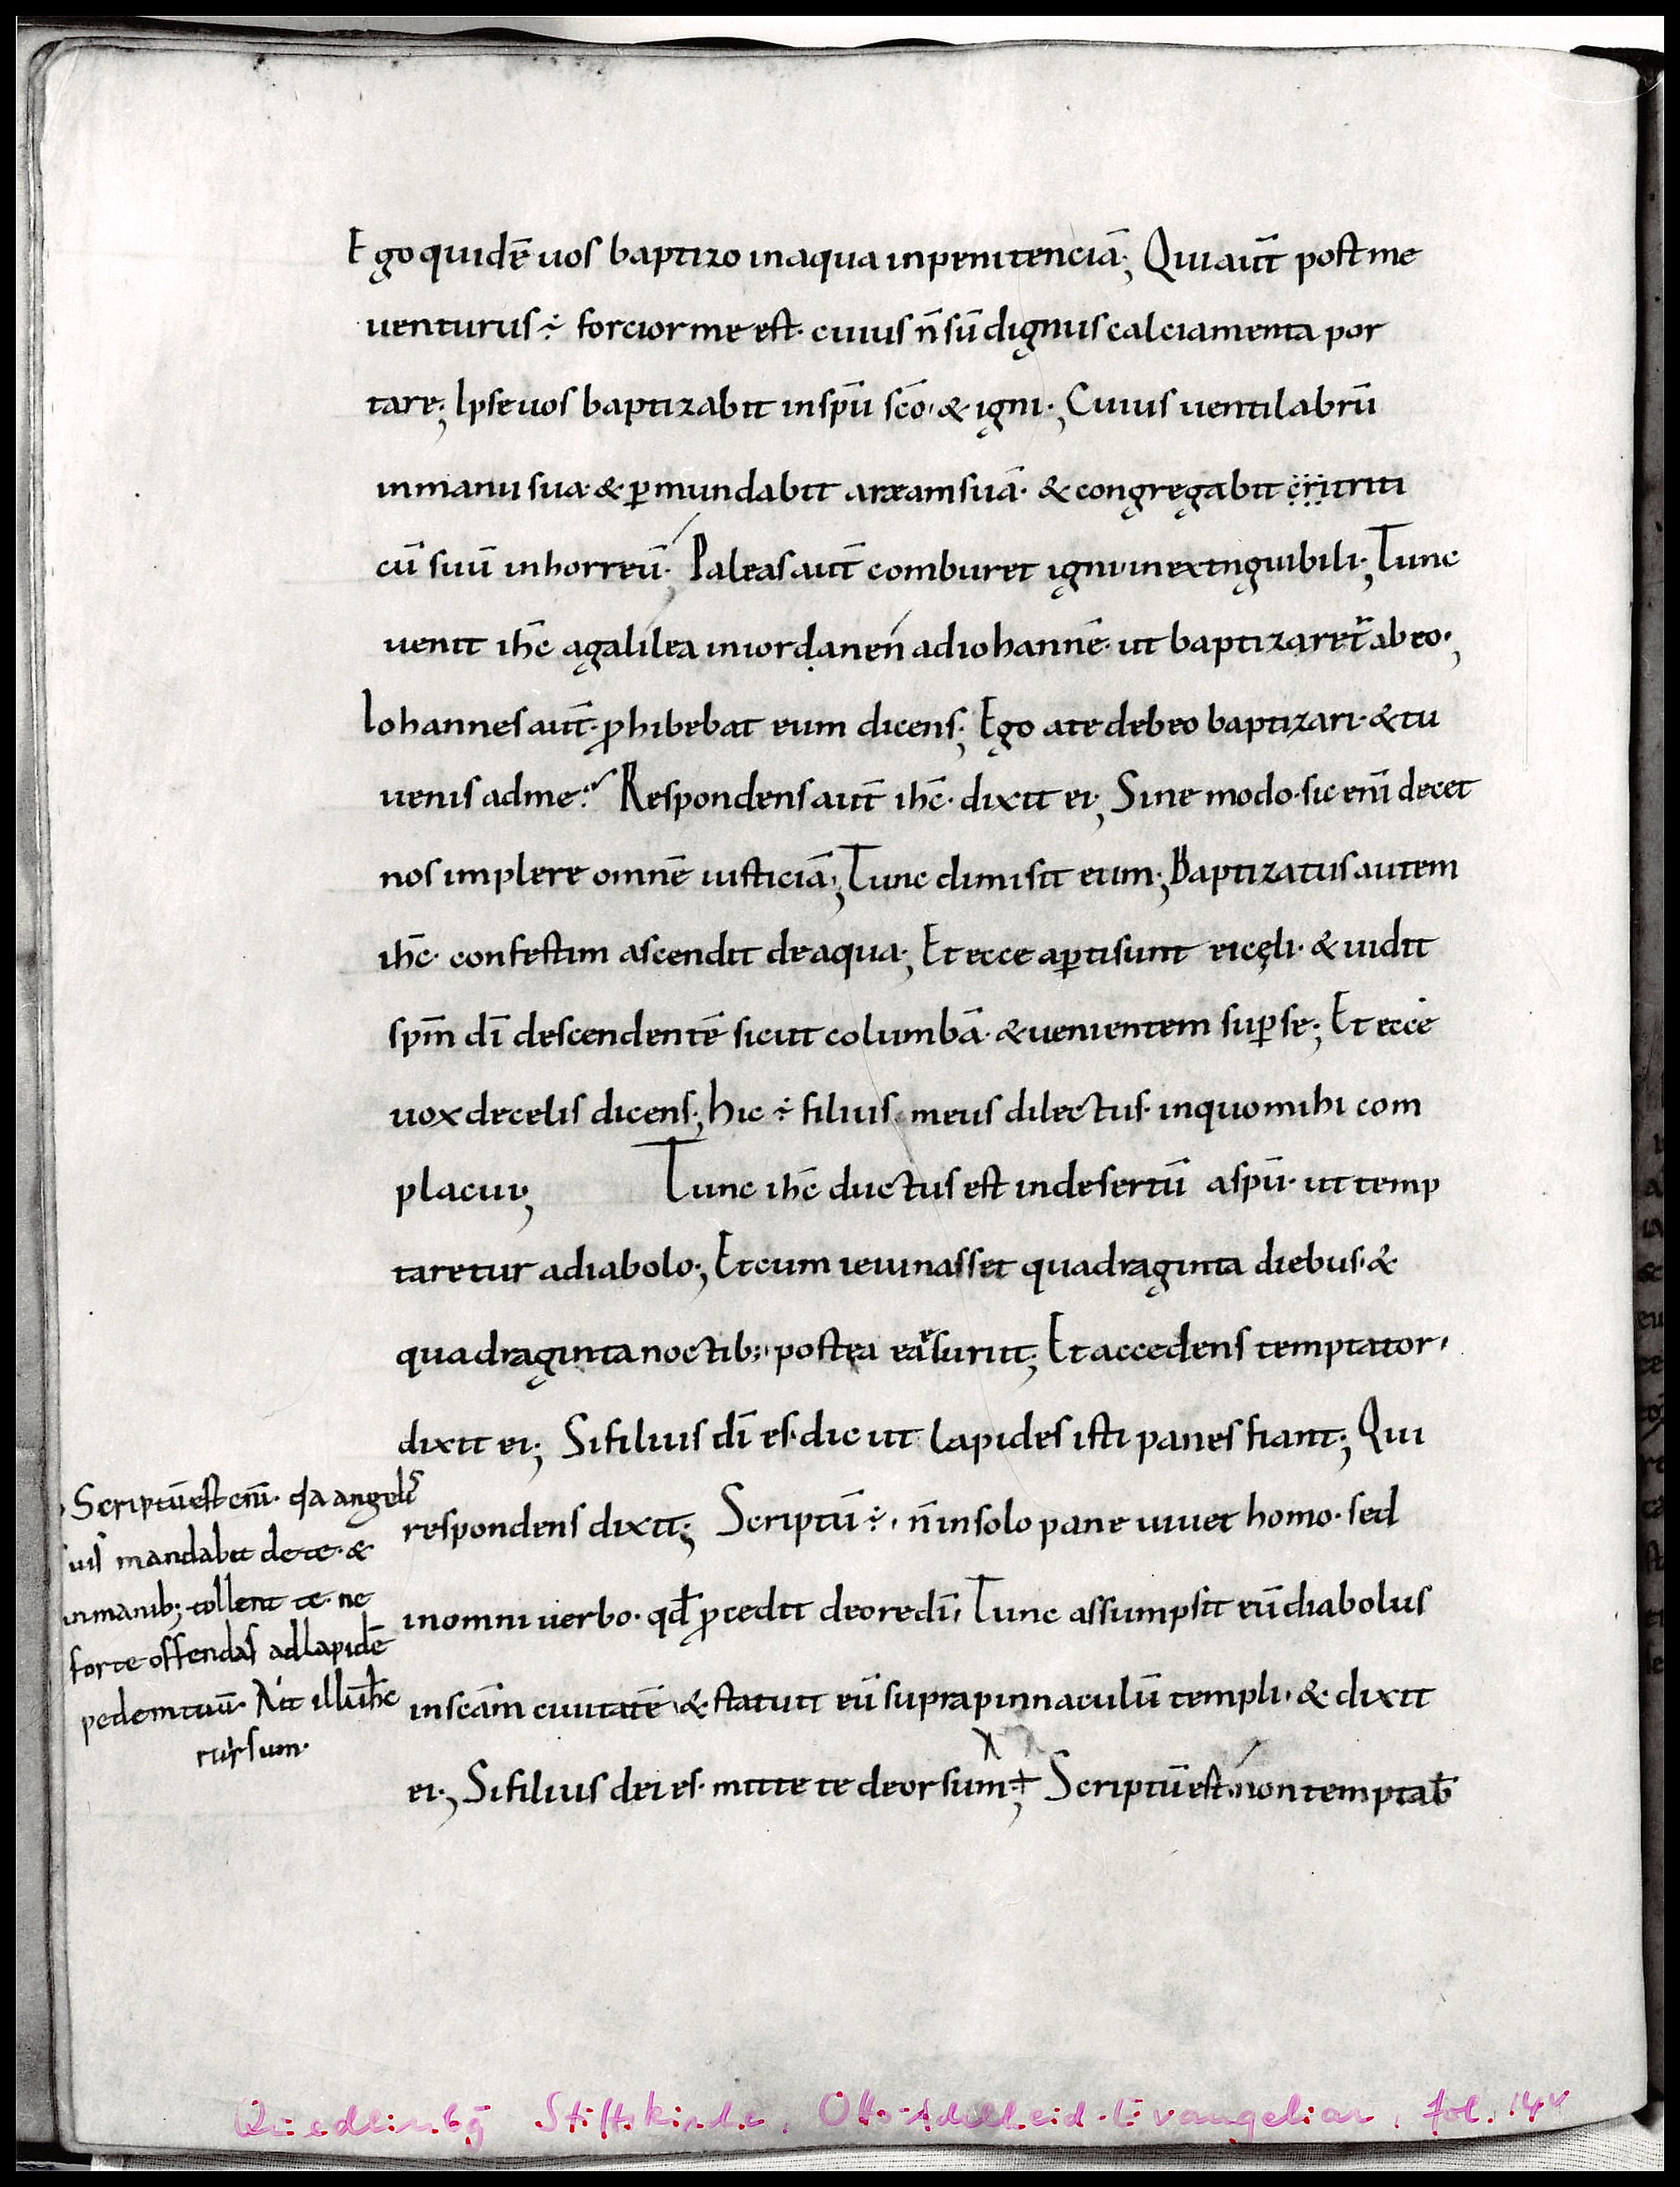 Ego quidē uos baptizo inaqua inpenitenciā; Qui aut̄ post me
uenturus ÷ forcior me est· cuius n̄ sū dignus calciamenta por
tare; Ipse uos baptizabit in sp̄u sc̄o· & igni·; Cuius uentilabrū
inmanu sua· & ꝑmundabit aream suā· & congregabit critriti
cū suū inhorreū· Paleas aut̄ comburet igni inextnguibili·; Tunc
uenit ih̄c agalilea iniordanen adiohannē· ut baptizaret̄ abeo·;
Iohannes aut̄· ꝓhibebat eum dicens; Ego ate debeo baptizari· & tu
uenis adme? Respondens aut̄ ih̄c· dixit ei·; Sine modo· sic eni̅ decet
nos implere omnē iusticiā·; Tunc dimisit eum·; Baptizatus autem
ih̄c· confestim ascendit deaqua·; Et ecce aꝑti sunt ei cęli· & uidit
sp̄m dī descendentē sicut columbā· & uenientem suꝑ se·; Et ecce
uox decelis dicens·; hic ÷ filius meus dilectus· inquo mihi com
placui·; Tunc ih̄c ductus est indesertū asp̄u· ut temp
taretur adiabolo·; Et cum ieiunasset quadraginta diebus· &
quadraginta noctib;· postea eaͤsuriit·; Et accedens temptator·
dixit ei·; Si filius dī es· dic ut lapides isti panes fiant·; Qui
respondens dixit·; Scriptū ÷· n̄ insolo pane uiuet homo· sed
inomni uerbo· qd̄ ꝓcedit deore dī· Tunc assumpsit eū diabolus
insc̄am ciuitatē· & statuit eū supra pinnaculū templi· & dixit
ei·; Si filius dei es· mitte te deorsum·; Scriptū est· non temptab̄
Scriptū est eni̅· qa angelis
suis mandabit dete· &
inmanib; tollent te· ne
forte offendas adlapidē
pedem tuū· Ait illi ih̄c
rursum·
Quedlinbg Stiftskirche, Otto-Adelheid-Evangeliar, fol. 144